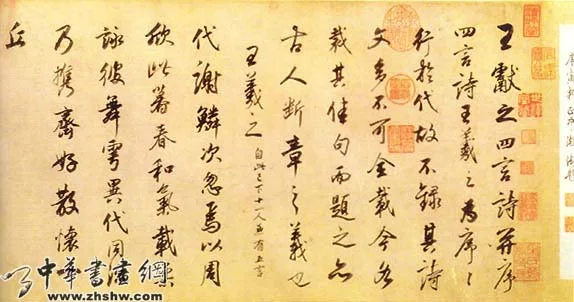 王獻之四言詩并序
四言詩王羲之為序〻
行於代故不錄其詩
文多不可全載今各
裁其佳句而題之亦
古人斷章之義也
王羲之 自此已下十一人並有五言
代謝鱗次忽焉以周
欣此暮春和氣載柔
詠彼舞雩異代同流
乃攜齊好散懷一
丘
中華書畫網
www.zhshw.com